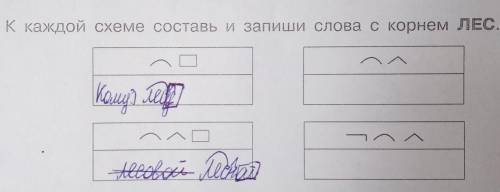 К каждой схеме составь и запиши слова с корнем ЛЕС.
Кому? Лесу
лесовой Лесной